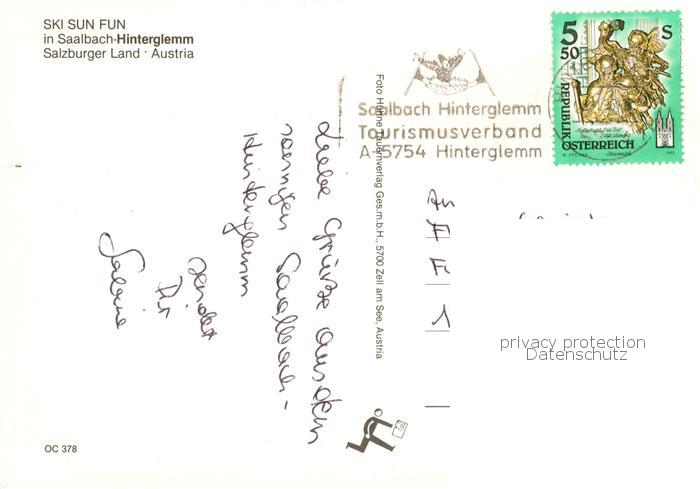 SKI SUN FUN
in Saalbach-Hinterglemm
Salzburger Land · Austria
Saalbach Hinterglemm
Tourismusverband
A-5754 Hinterglemm
5
50
S
REPUBLIK
ÖSTERREICH
Foto Huhne Tauernverlag Ges.m.b.H., 5700 Zell am See, Austria
Liebe Grüße aus dem
sonnigen Saalbach-
Hinterglemm
sendet
Dir
Sabine
privacy protection
Datenschutz
OC 378